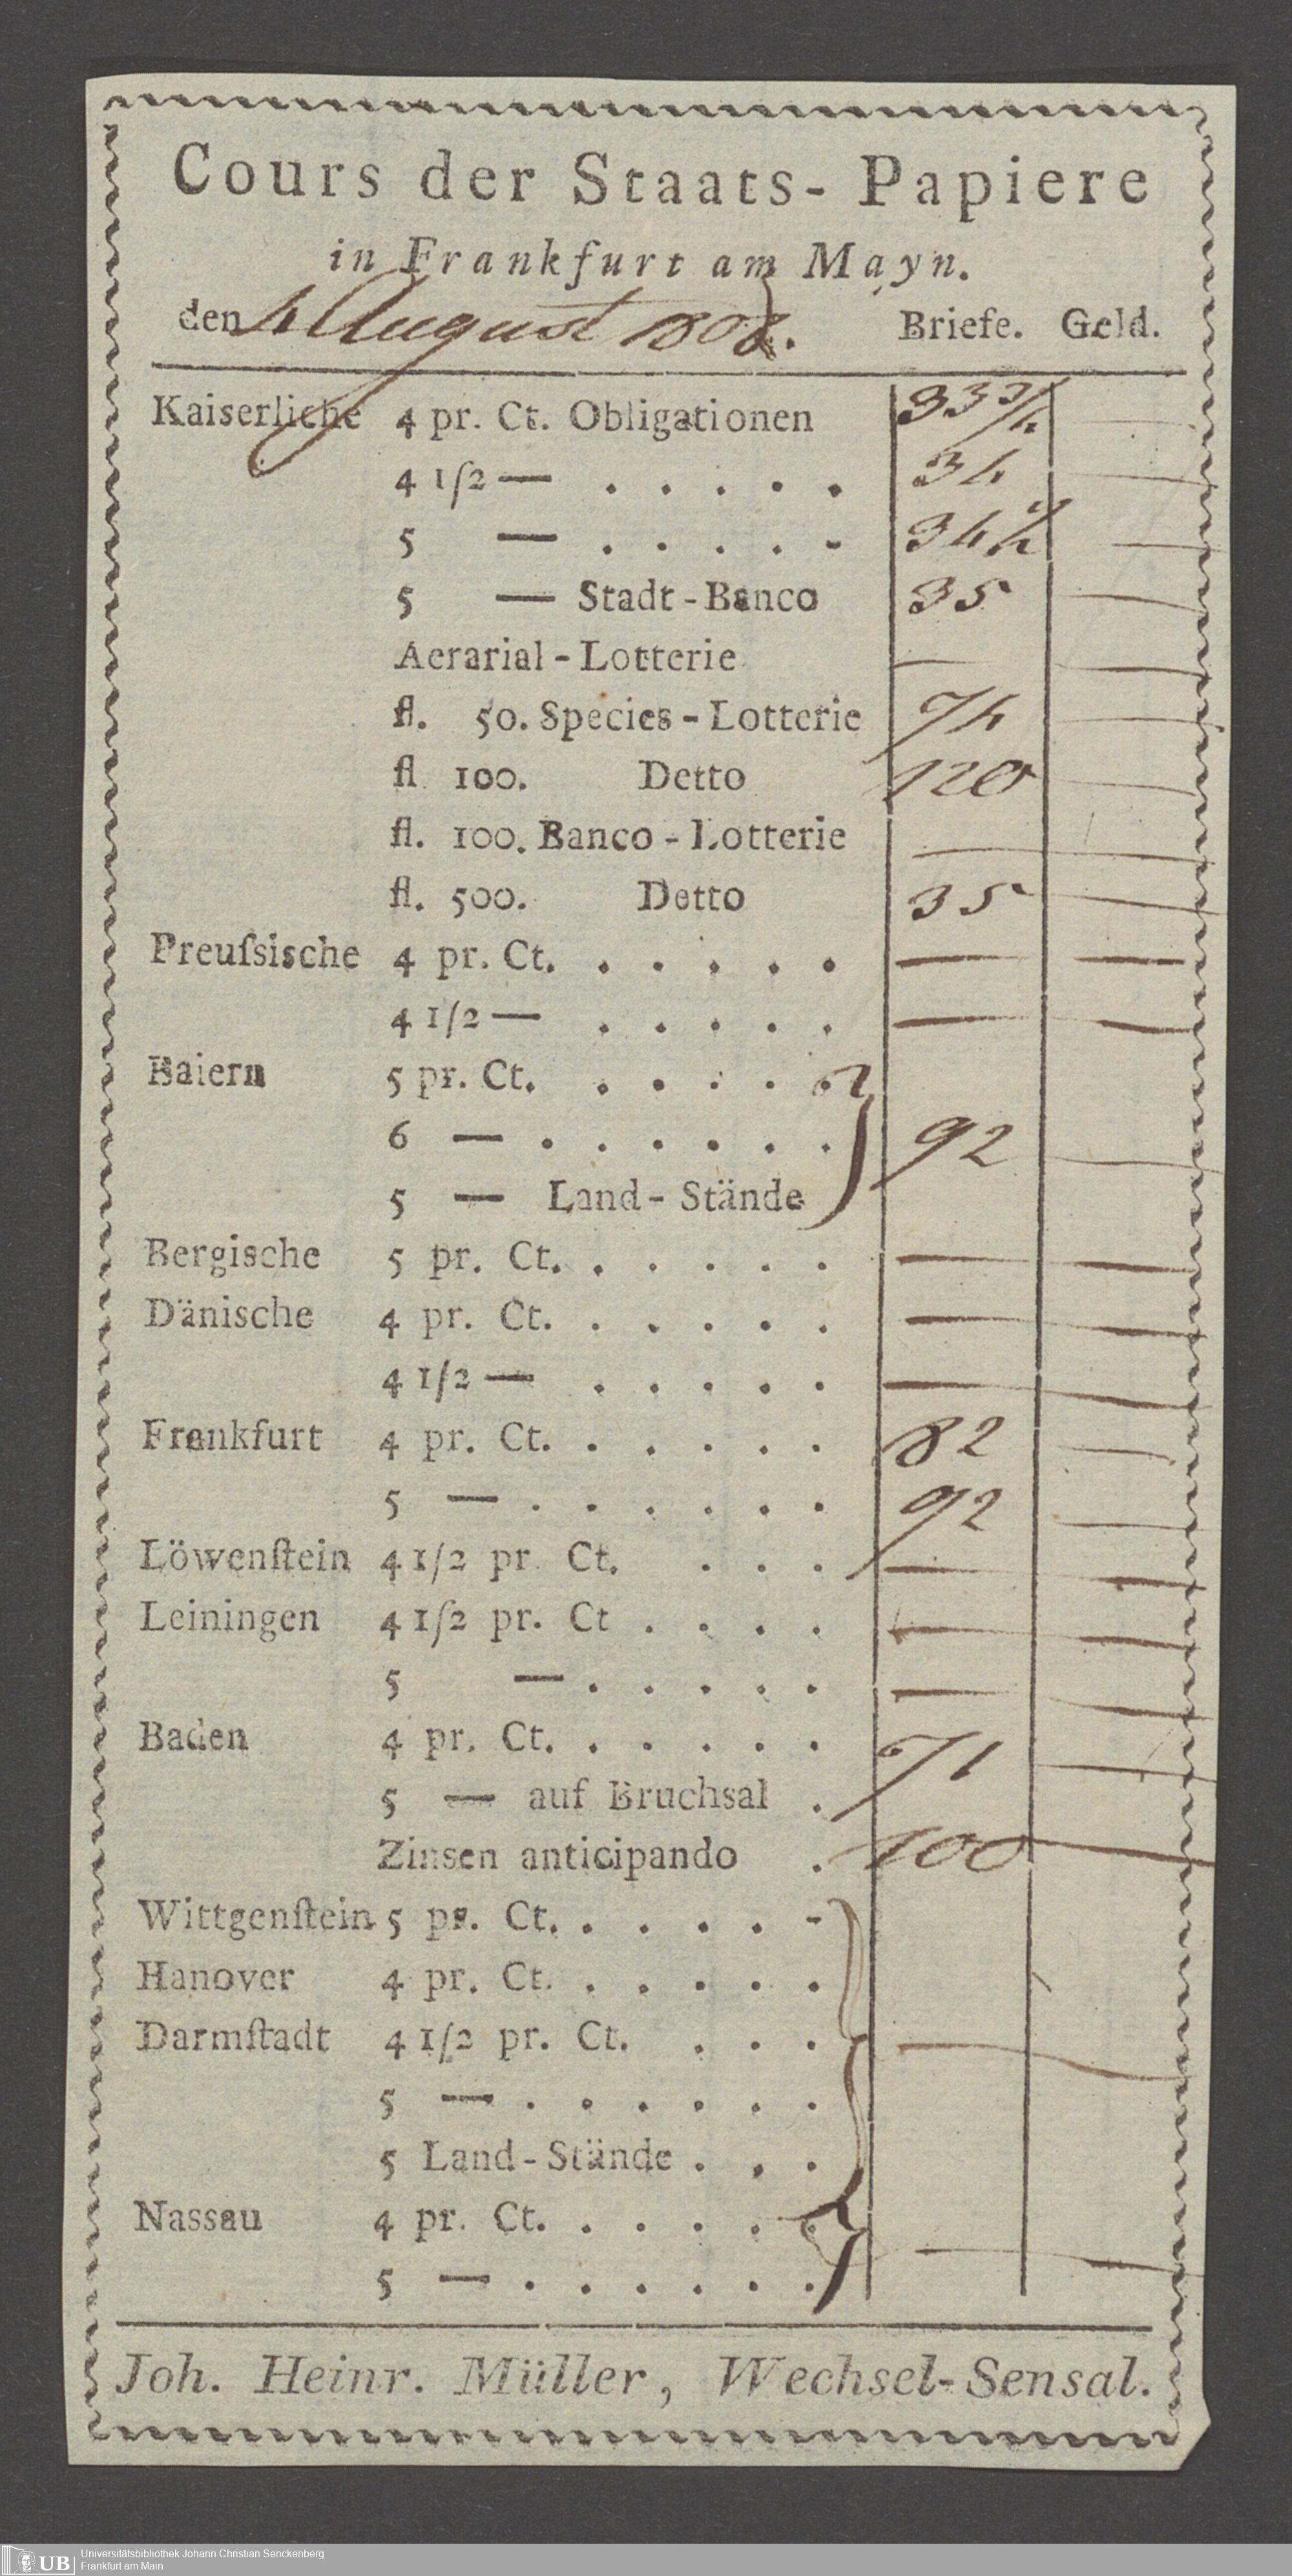 Cours der Staats-Papiere
in Frankfurt am Mayn.
den 4 August 1808. Briefe. Geld.
Kaiserliche 4 pr. Ct. Obligationen 33 3/4 —
4 1/2 — . . . . . 34 —
5 — . . . . - 34 1/4 —
5 — Stadt-Banco 35 —
Aerarial-Lotterie — —
fl. 50. Species-Lotterie 74 —
fl 100. Detto 120 —
fl. 100. Banco-Lotterie — —
fl. 500. Detto 35 —
Preuſsische 4 pr. Ct. . . . . . — —
4 1/2 — . . . . . — —
Baiern 5 pr. Ct. . . . . .
6 — . . . . . . 92 —
5 — Land-Stände
Bergische 5 pr. Ct. . . . . . — —
Dänische 4 pr. Ct. . . . . . — —
4 1/2 — . . . . . — —
Frankfurt 4 pr. Ct. . . . . . 82 —
5 — . . . . . . 92 —
Löwenſtein 4 1/2 pr. Ct. . . . — —
Leiningen 4 1/2 pr. Ct . . . . — —
5 — . . . . . — —
Baden 4 pr. Ct. . . . . . 71 —
5 — auf Bruchsal .
Zinsen anticipando . 100 —
Wittgenſtein 5 pr. Ct. . . . . -
Hanover 4 pr. Ct. . . . . .
Darmſtadt 4 1/2 pr. Ct. . . . — —
5 — . . . . . .
5 Land-Stände . . .
Nassau 4 pr. Ct. . . . . . — —
5 — . . . . . .
Joh. Heinr. Müller, Wechsel-Sensal.
UB Universitätsbibliothek Johann Christian Senckenberg
Frankfurt am Main